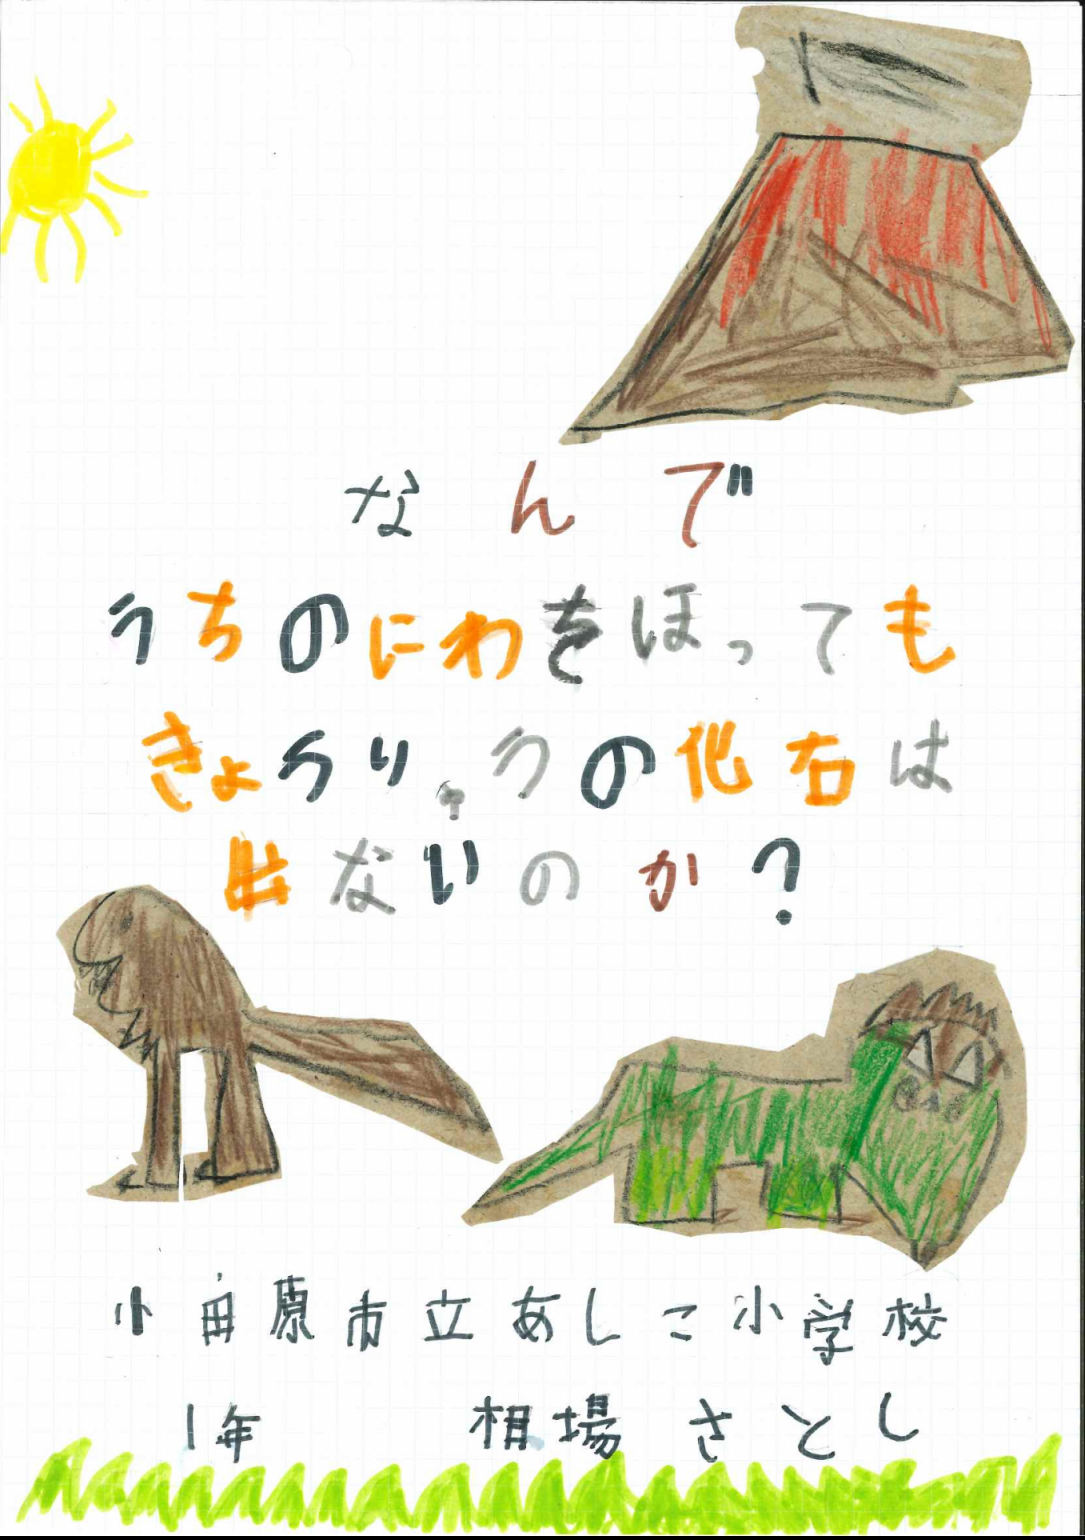 なんで
うちのにわをほっても
きょうりゅうの化石は
出ないのか?
小田原市立あしこ小学校
1年 相場さとし